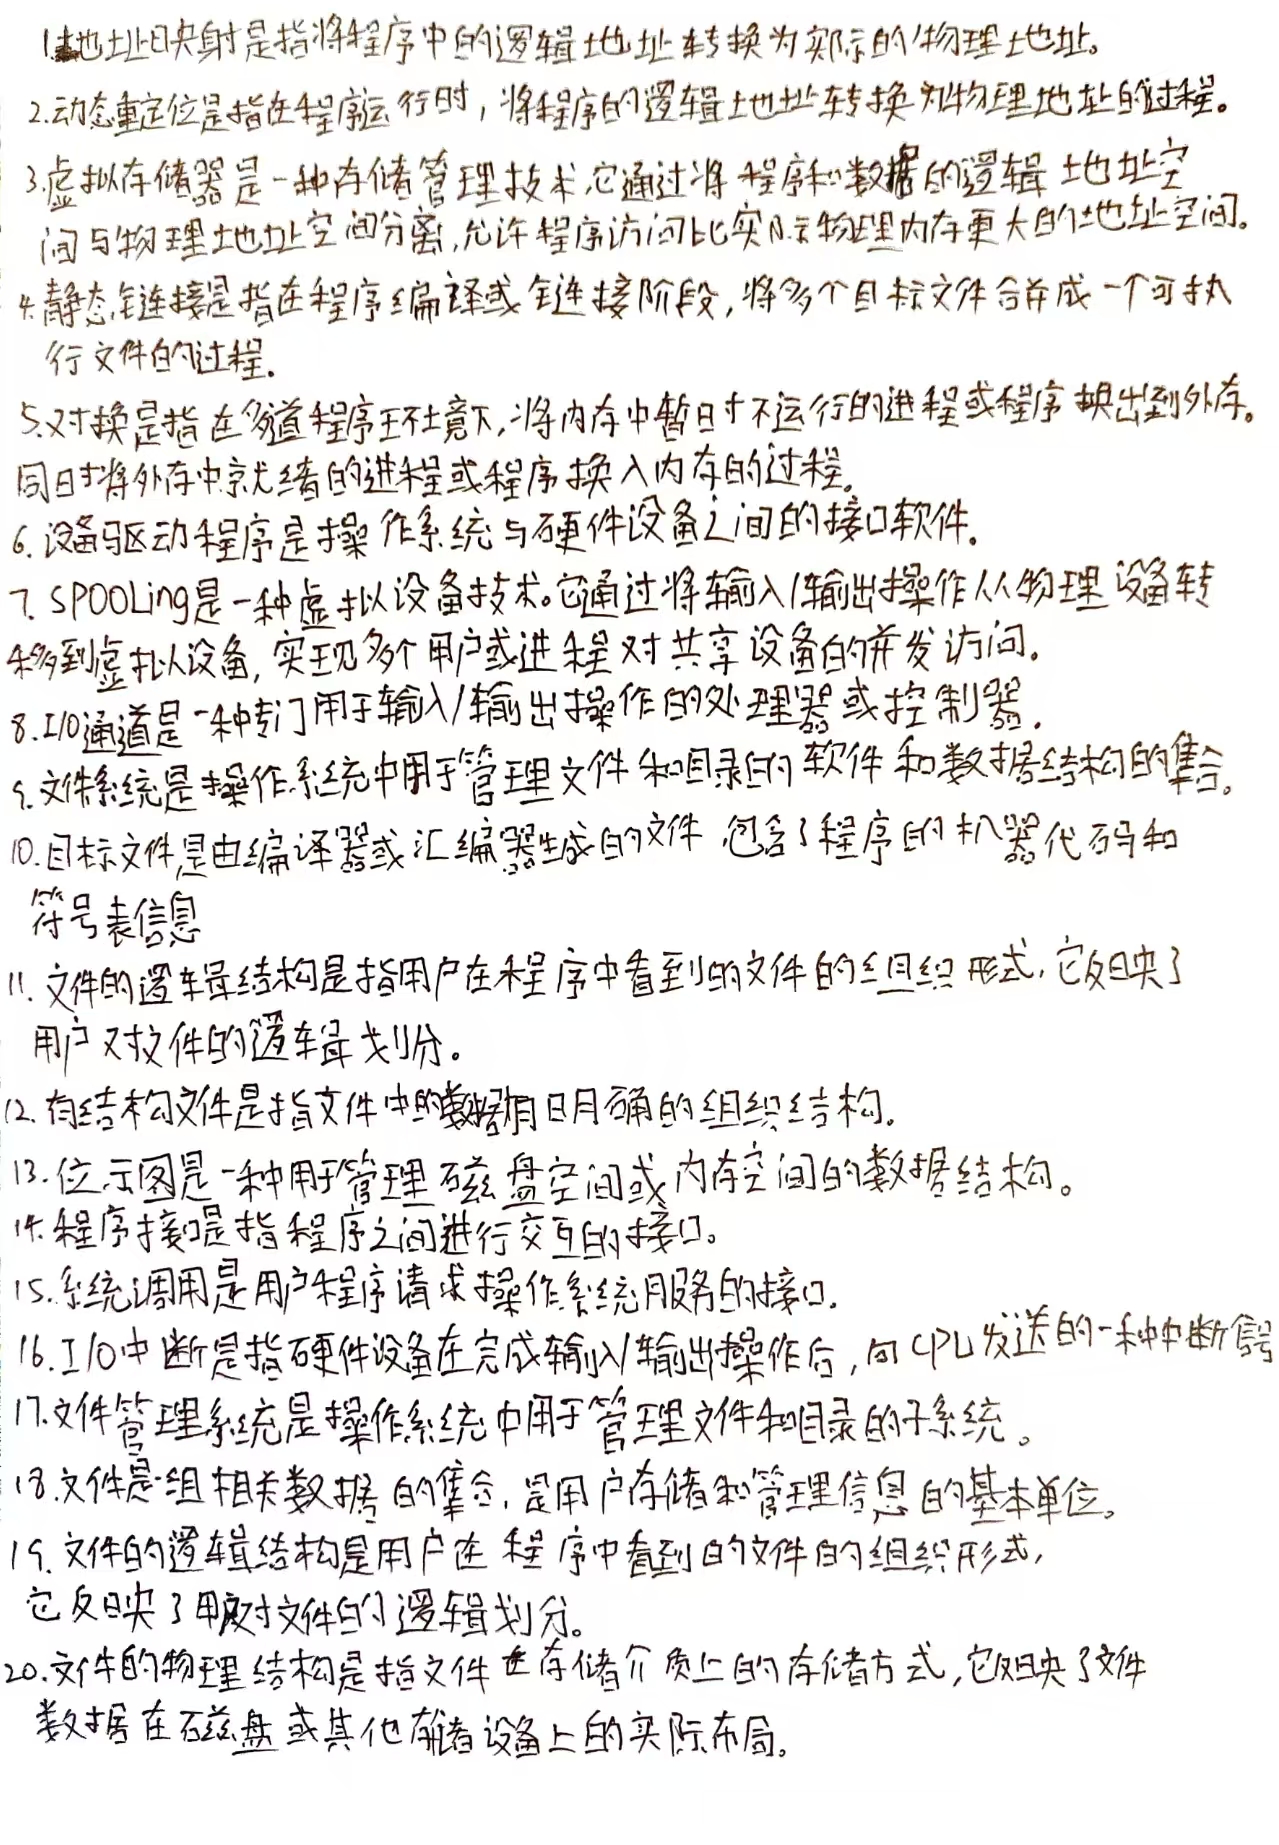 1.地址映射是指将程序中的逻辑地址转换为实际的物理地址。
2.动态重定位是指在程序运行时，将程序的逻辑地址转换为物理地址的过程。
3.虚拟存储器是一种存储管理技术,它通过将程序和数据的逻辑地址空
间与物理地址空间分离,允许程序访问比实际物理内存更大的地址空间。
4.静态链接是指在程序编译或链接阶段,将多个目标文件合并成一个可执
行文件的过程.
5.对换是指在多道程序环境下,将内存中暂时不运行的进程或程序换出到外存。
同时将外存中就绪的进程或程序换入内存的过程。
6.设备驱动程序是操作系统与硬件设备之间的接口软件。
7.SPOOLing是一种虚拟设备技术。它通过将输入/输出操作从物理设备转
移到虚拟设备,实现多个用户或进程对共享设备的并发访问。
8.I/O通道是一种专门用于输入/输出操作的处理器或控制器.
9.文件系统是操作系统中用于管理文件和目录的软件和数据结构的集合。
10.目标文件是由编译器或汇编器生成的文件 包含了程序的机器代码和
符号表信息
11.文件的逻辑结构是指用户在程序中看到的文件的组织形式,它反映了
用户对文件的逻辑划分。
12.有结构文件是指文件中的数据有明确的组织结构.
13.位示图是一种用于管理磁盘空间或内存空间的数据结构。
14.程序接口是指程序之间进行交互的接口。
15.系统调用是用户程序请求操作系统服务的接口.
16.I/O中断是指硬件设备在完成输入/输出操作后,向CPU发送的一种中断信号
17.文件管理系统是操作系统中用于管理文件和目录的子系统。
18.文件是一组相关数据的集合,是用户存储和管理信息的基本单位。
19.文件的逻辑结构是用户在程序中看到的文件的组织形式,
它反映了用户对文件的逻辑划分。
20.文件的物理结构是指文件在存储介质上的存储方式,它反映了文件
数据在磁盘或其他存储设备上的实际布局。